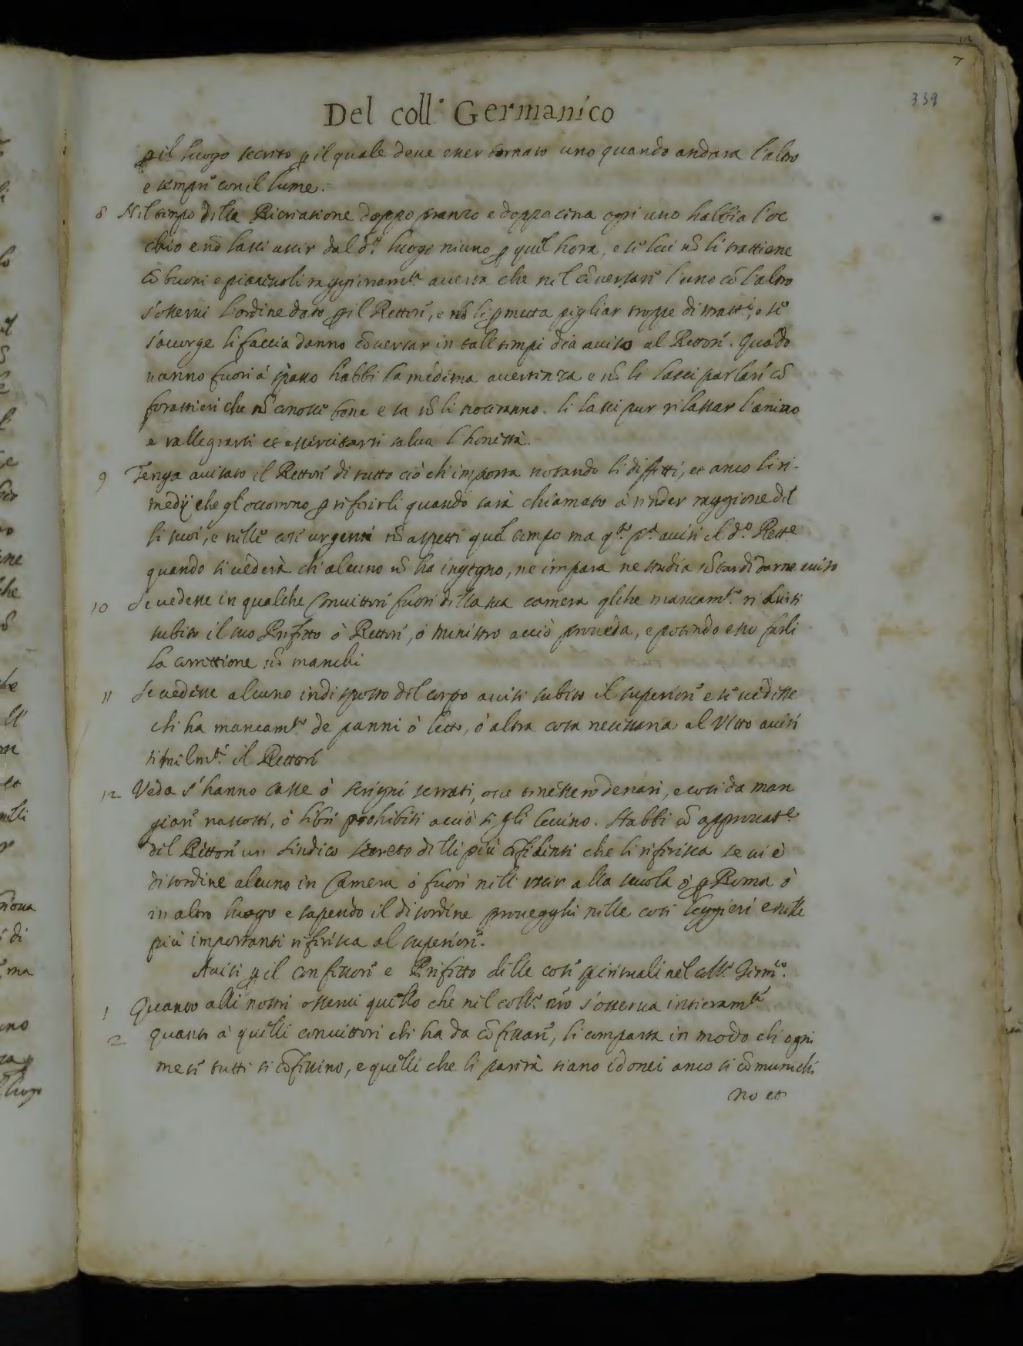 339
7
Del coll.º Germanico
p il luogo secreto p il quale deve esser tornato uno quando andara l'altro
e sempre con il lume.
8 Nel tempo della Ricriatione doppo pranzo e doppo cena ogni uno habbia l'oc
chio e nõ lassi uscir dal d.º luogo niuno p quel hora, e se lui nõ li trattiene
cõ buoni e piacevoli raggionam.ti avverta che nel cõversare l'uno cõ l'altro
s'osservi l'ordine dato p il Rettore, e nõ li pmetta pigliar troppo di tratti, e se
s'accorge li faccia danno cõversar in tali tempi dia aviso al Rettore. Quãdo
vanno fuori à spasso habbi la medesima avertenza e nõ li lassi parlare cõ
forastieri che nõ conosce bene e sa nõ li noceranno. li lassi pur rilassar l'animo
e rallegrarsi et essercitarsi salva l'honestà.
9 Tenga avisato il Rettore di tutto ciò ch'importa notando li difetti, et anco li ri-
medij che gl'occorrono p riferirli quando sarà chiamato à render raggione del
li suoi, e nelle cose urgenti nõ aspetti quel tempo ma q.to p.a avisi il d.º Rett.e
quando si vederà ch'alcuno nõ ha ingegno, ne impara ne studia nõ tardi darne aviso
10 Se vedesse in qualche Convittore fuori della sua camera qlche mancam.to n'avisi
subito il suo Prefetto ò Rettore, ò ministro acciò proveda, e potendo esso farli
la correttione nõ manchi
11 Se vedesse alcuno indisposto del corpo avisi subito il superiore e se vedesse
ch'ha mancam.to de panni ò letto, ò altra cosa necessaria al Vitto avisi
similm.te il Rettore
12 Veda s'hanno casse ò scrigni serrati, ove tenessero denari, e cose da man
giare nascosti, ò libri prohibiti acciò se gli levino. Habbi cõ approvat.e
del Rettore un sindico secreto delli più cõfidenti che li riferisca se vi è
disordine alcuno in Camera ò fuori nell'uscir alla scuola ò p Roma ò
in altro luogo e sapendo il disordine provegghi nelle cose leggieri e nelle
più importanti riferisca al superiore.
Avisi p il confessore e Prefetto delle cose spirituali nel coll.º Germ.co
1 Quanto alli nostri osservi quello che nel coll.º nro s'osserva intieram.te
2 quanto à quelli convittori ch'ha da cõfessare, li comparta in modo ch'ogni
mese tutti si cõfessino, e quelli che li parerà siano idonei anco si cõmunichi
no et